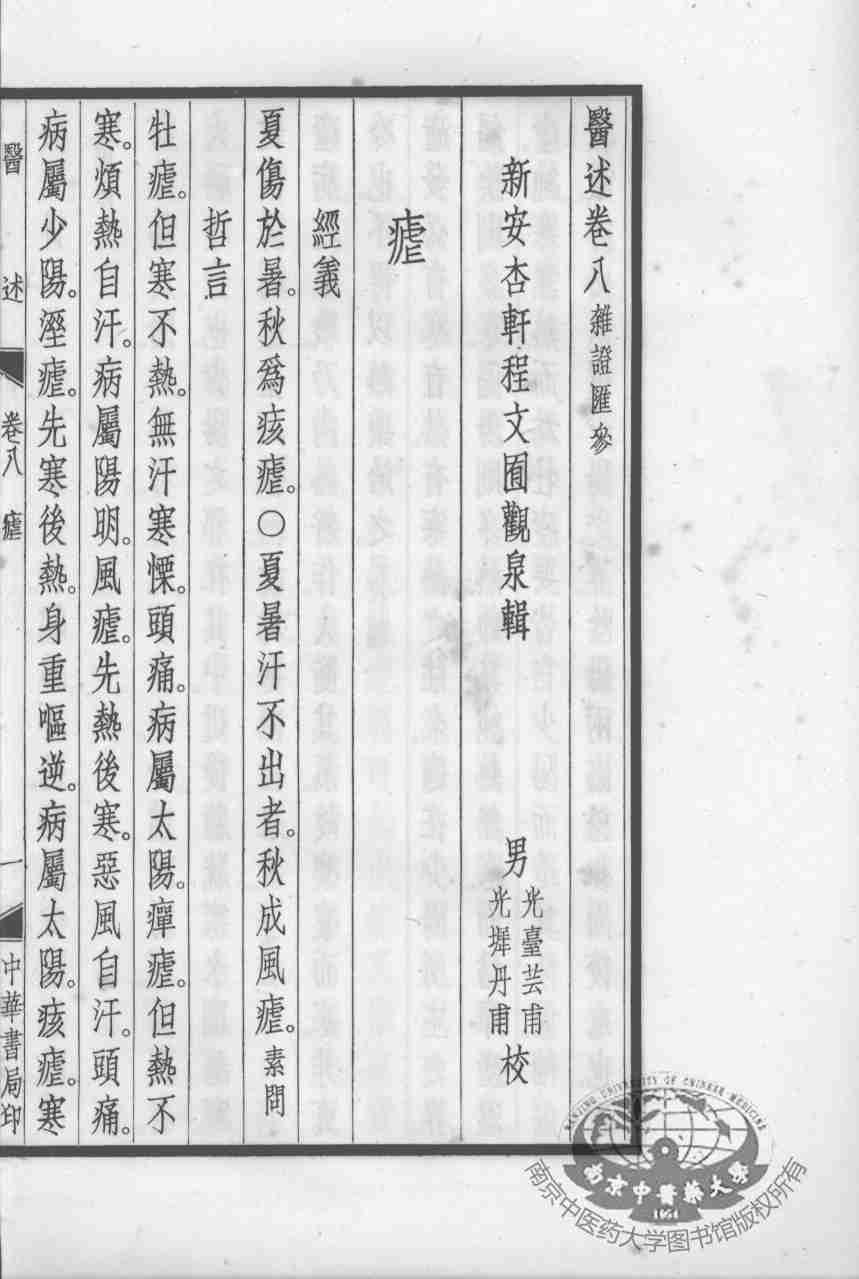 醫述卷八 雜證匯參
新安杏軒程文囿觀泉輯
男
光臺芸甫
光墀丹甫
校
瘧
經義
夏傷於暑。秋爲痎瘧。〇夏暑汗不出者。秋成風瘧。素問
哲言
牡瘧。但寒不熱。無汗寒慄。頭痛。病屬太陽。癉瘧。但熱不
寒。煩熱自汗。病屬陽明。風瘧。先熱後寒。惡風自汗。頭痛。
病屬少陽。溼瘧。先寒後熱。身重嘔逆。病屬太陽。痎瘧。寒
醫述 卷八 瘧 一 中華書局印
NANJING UNIVERSITY OF CHINESE MEDICINE
南京中醫藥大學
1954
南京中医药大学图书馆版权所有